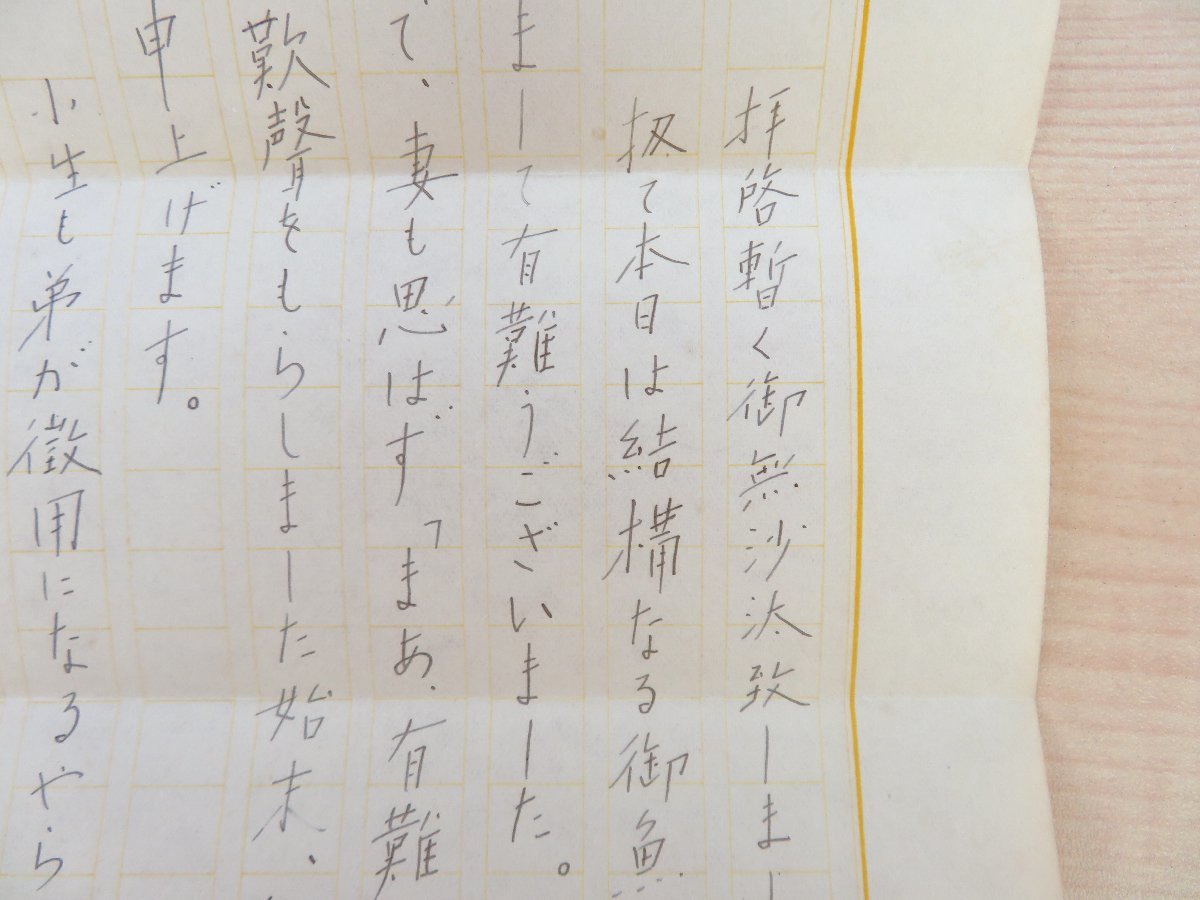 拝啓暫く御無沙汰致しまし
扨て本日は結構なる御魚
まして有難うございました。
て、妻も思はず「まあ、有難
歎聲をもらしました始末、
申上げます。
小生も弟が徴用になるやら